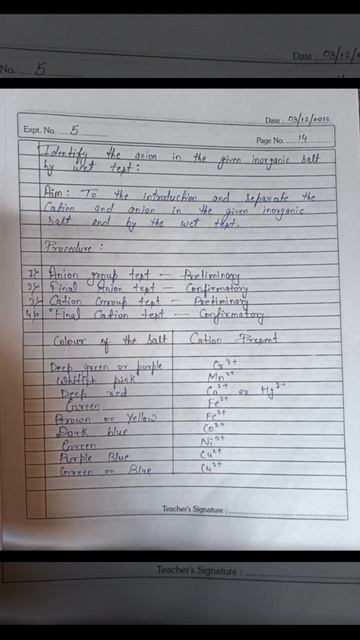 Date : 03/12/
No. 5
Date : 03/12/2022
Expt. No. 5
Page No. 14
Identify the anion in the given inorganic salt
by wet test :
Aim : To the introduction and separate the
Cation and anion in the given inorganic
salt and by the wet test.
Procedure :
1) Anion group test — Preliminary
2) Final Anion test — Confirmatory
3) Cation Group test — Preliminary
4) Final Cation test — Confirmatory
Colour of the salt Cation Present
Deep green or purple Cr3+
Whitish pink Mn2+
Deep red Co2+ or Hg2+
Green Fe2+
Brown or Yellow Fe3+
Dark blue Co2+
Green Ni2+
Purple Blue Cu2+
Green or Blue Cu2+
Teacher's Signature :
Teacher's Signature :